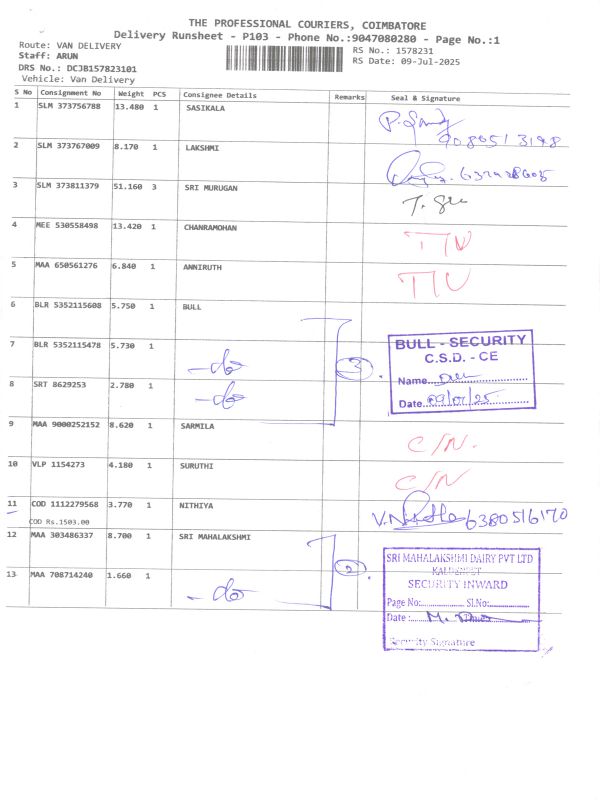 THE PROFESSIONAL COURIERS, COIMBATORE
Delivery Runsheet - P103 - Phone No.:9047080280 - Page No.:1
Route: VAN DELIVERY
Staff: ARUN
DRS No.: DCJB157823101
Vehicle: Van Delivery
RS No.: 1578231
RS Date: 09-Jul-2025
S No Consignment No Weight PCS Consignee Details Remarks Seal & Signature
1 SLM 373756788 13.480 1 SASIKALA
2 SLM 373767009 8.170 1 LAKSHMI
3 SLM 373811379 51.160 3 SRI MURUGAN
4 MEE 530558498 13.420 1 CHANRAMOHAN
5 MAA 650561276 6.840 1 ANNIRUTH
6 BLR 5352115608 5.750 1 BULL
7 BLR 5352115478 5.730 1 -do- 3
BULL - SECURITY
C.S.D. - CE
Name
Date
8 SRT 8629253 2.780 1 -do-
9 MAA 9000252152 8.620 1 SARMILA C/N.
10 VLP 1154273 4.180 1 SURUTHI C/N
11 COD 1112279568 3.770 1 NITHIYA 6380516170
COD Rs.1503.00
12 MAA 303486337 8.700 1 SRI MAHALAKSHMI 2
13 MAA 708714240 1.660 1 -do-
SRI MAHALAKSHMI DAIRY PVT LTD
SECURITY INWARD
Page No: Sl.No:
Date :
Security Signature